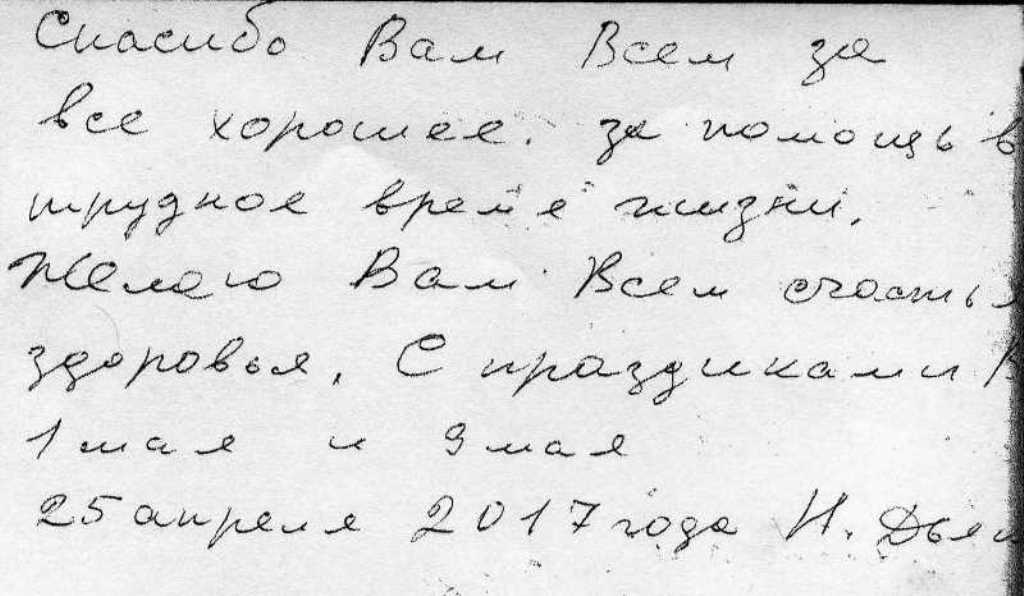 Спасибо Вам Всем за
все хорошее. за помощь в
трудное время жизни.
Желаю Вам Всем счастья
здоровья, С праздиками
1 мая и 9 мая
25 апреля 2017 года Н.